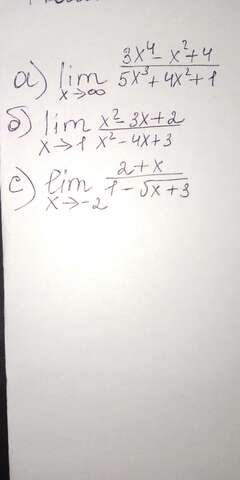 а) lim x→∞ (3x⁴ - x² + 4)/(5x³ + 4x² + 1)
б) lim x→1 (x² - 3x + 2)/(x² - 4x + 3)
с) lim x→-2 (2 + x)/(1 - √x + 3)